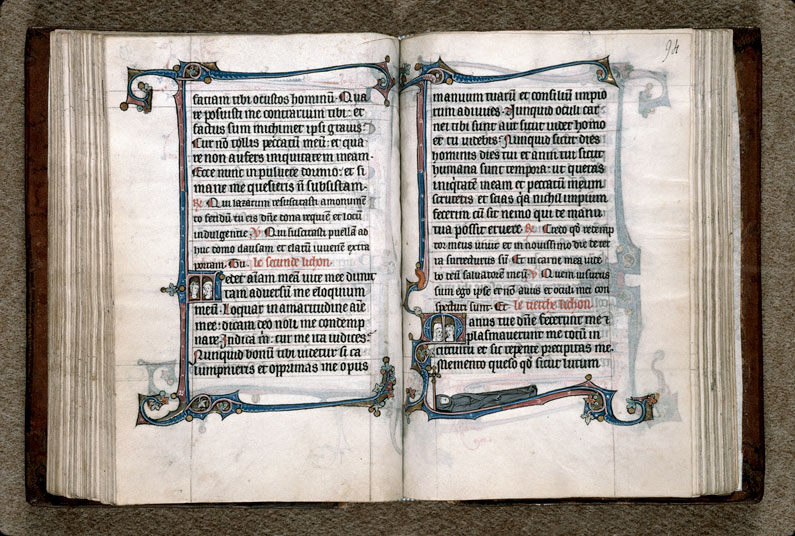 factam tibi o custos hominū. Qua
re posuisti me contrarium tibi: et
factus sum michimet ipsi grauis:
Cur nō tollis peccatū meū: et qua
re non aufers iniquitatem meam.
Ecce nunc in puluere dormio: et si
mane me quesieris n subsistam.
R Qui lazarum resuscitasti a monumē
to fetidū tu eis dñe dona requiē et locū
indulgentie. V Qui suscitasti puellā ad
huc domo clausam et clatū iuuenē extra
portam. Tu. le secunde lichon.
Tedet aīam meā vite mee dimit
tam aduersū me eloquium
meū. Loquar in amaritudine aīe
mee: dicam deo noli me condemp
nare. Indica m: cur me ita iudices:
Nunquid bonū tibi videtur si ca
lumpnieris et opprimas me opus
94
manuum tuarū et consiliū impio
rum adiuues. Nunquid oculi car
nei tibi sunt aut sicut videt homo
et tu videbis: Nunquid sicut dies
hominis dies tui et anni tui sicut
humana sunt tempora: ut queras
iniqtatē meam et peccatū meum
scruteris et scias qa nichil impium
fecerim cū sit nemo qui de manu
tua possit eruere. R Credo qd redemp
tor meus viuit et in nouissimo die de ter
ra surrecturus sū Et in carne mea vide
bo deū saluatorē meū V Quem visurus
sum ego ipse et nō alius et oculi mei con
specturi sunt. Et le tierche lichon.
Manus tue dñe fecerunt me et
plasmauerunt me totū in
circuitu et sic repente precipitas me.
Memento queso qd sicut lutum